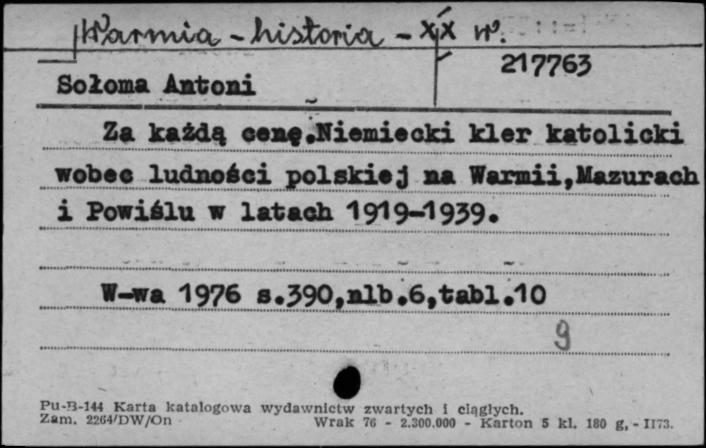 Warmia - historia - XX w.
217763
Sołoma Antoni
Za każdą cenę.Niemiecki kler katolicki
wobec ludności polskiej na Warmii,Mazurach
i Powiślu w latach 1919-1939.
W-wa 1976 s.390,nlb.6,tabl.10
9
Pu-B-144 Karta katalogowa wydawnictw zwartych i ciągłych.
Zam. 2264/DW/On Wrak 76 - 2.300.000 - Karton 5 kl. 180 g, - II73.